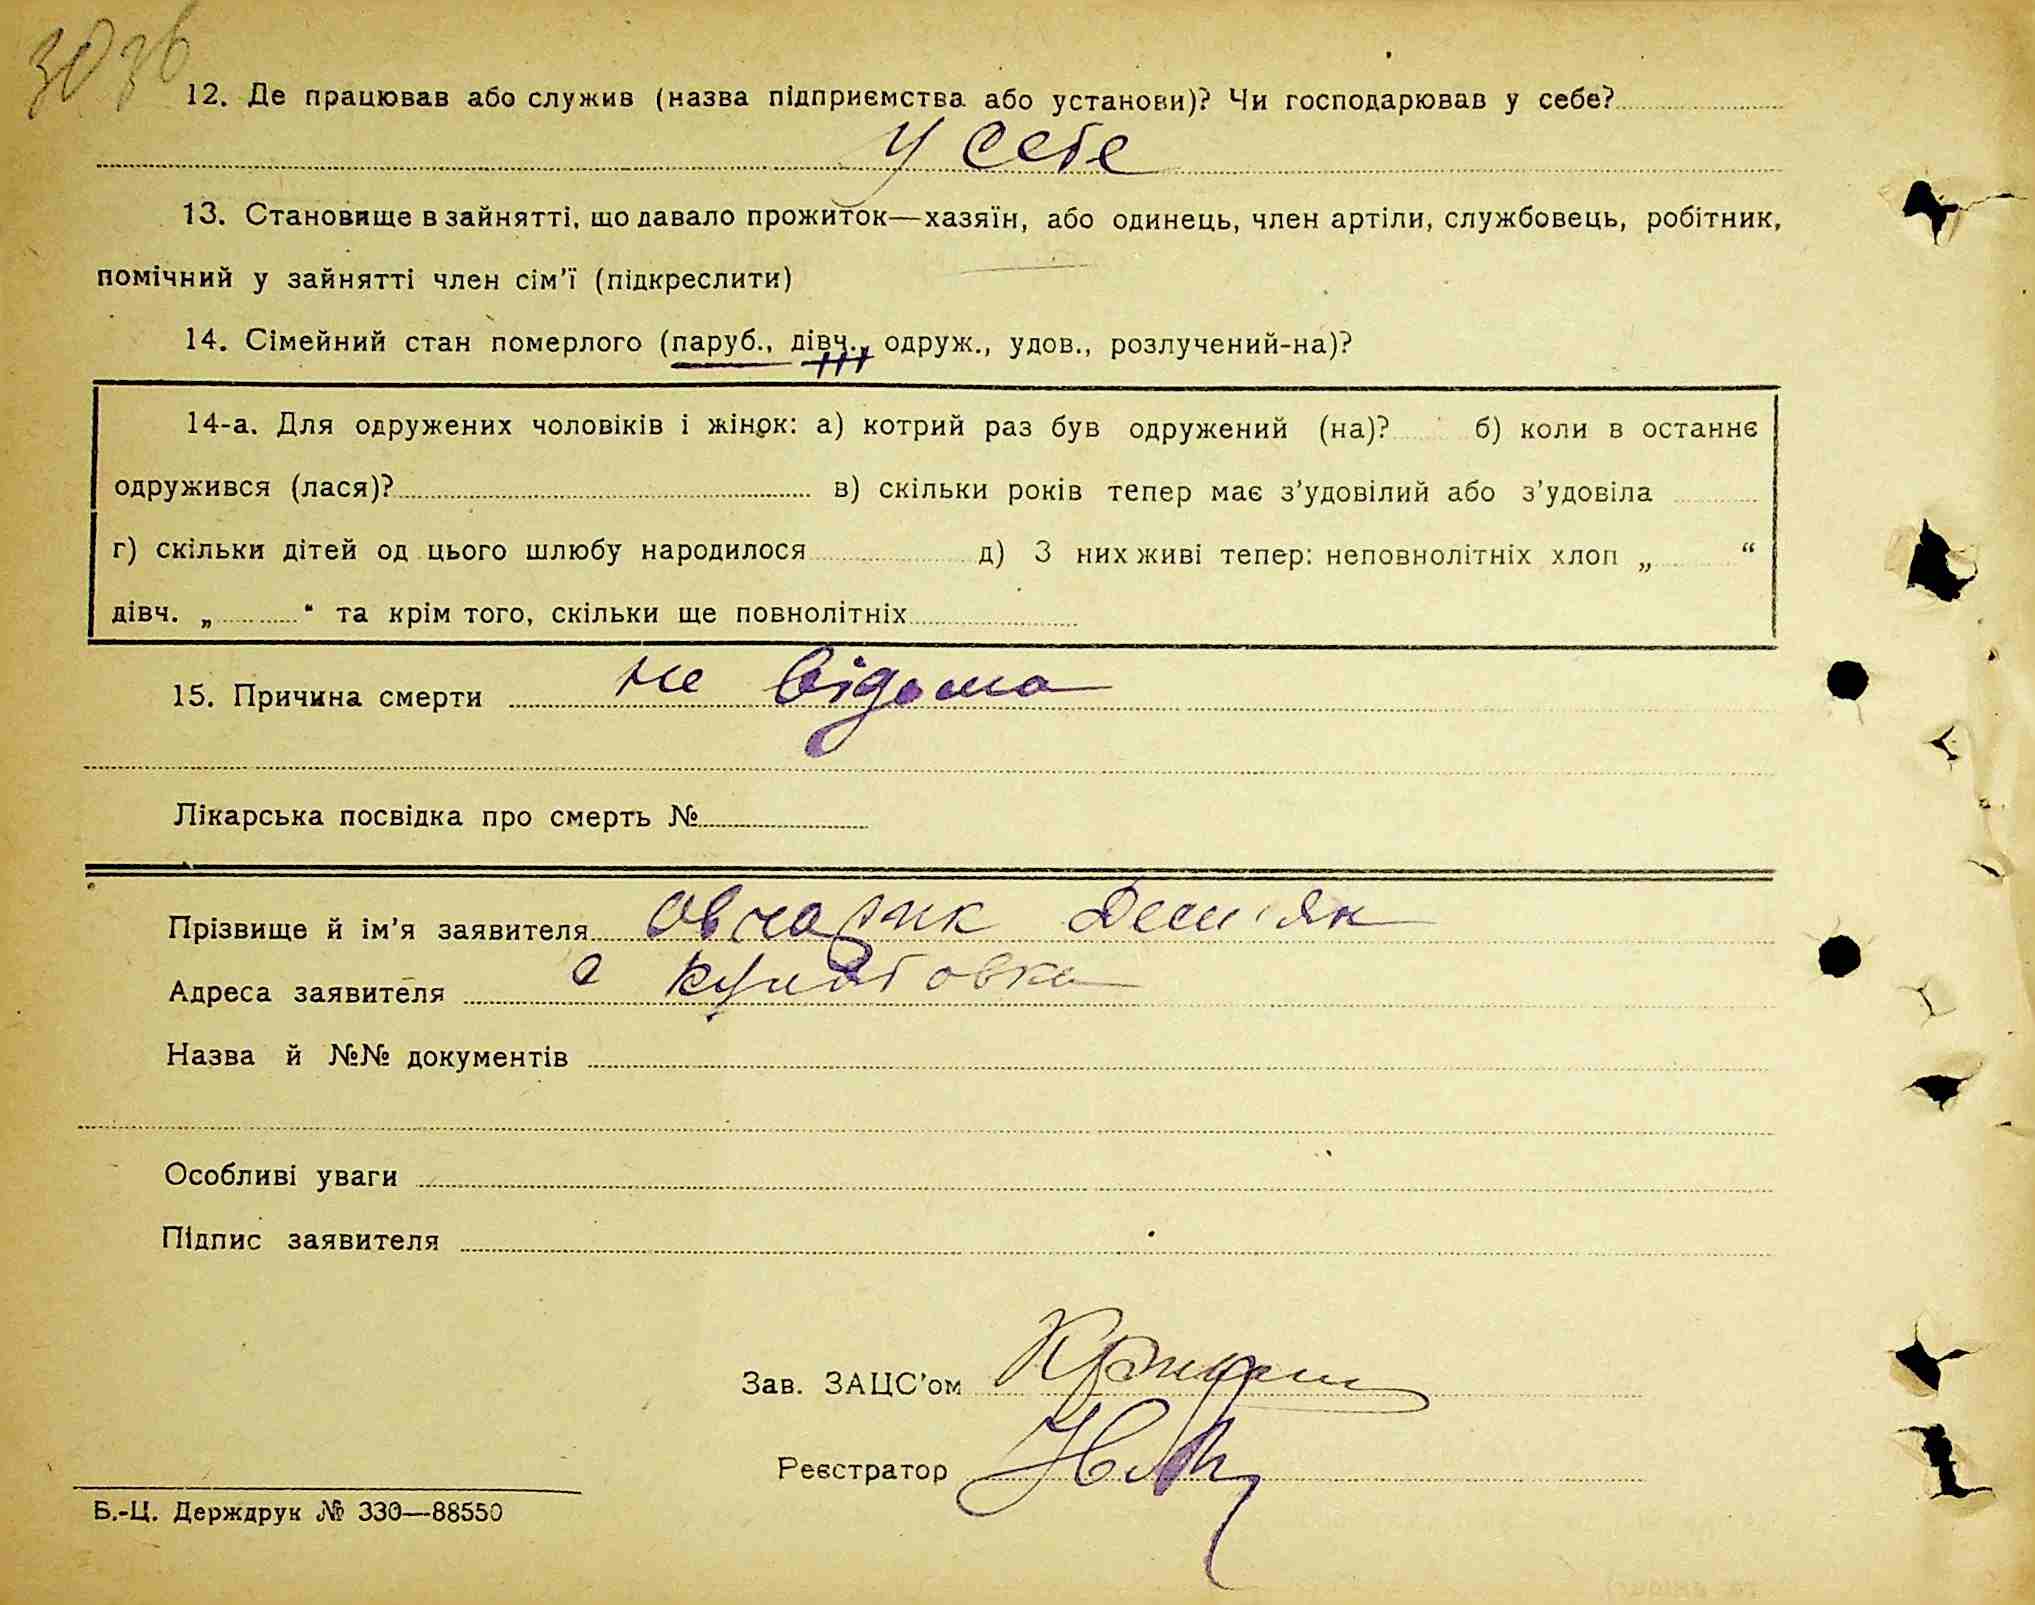 3036
12. Де працював або служив (назва підприємства або установи)? Чи господарював у себе?
У себе
13. Становище в зайнятті, що давало прожиток—хазяїн, або одинець, член артіли, службовець, робітник,
помічний у зайнятті член сім'ї (підкреслити)
14. Сімейний стан померлого (паруб., дівч., одруж., удов., розлучений-на)?
14-а. Для одружених чоловіків і жінок: а) котрий раз був одружений (на)? б) коли в останнє
одружився (лася)? в) скільки років тепер має з'удовілий або з'удовіла
г) скільки дітей од цього шлюбу народилося д) З них живі тепер: неповнолітніх хлоп „ “
дівч. „ “ та крім того, скільки ще повнолітніх
15. Причина смерти не відома
Лікарська посвідка про смерть №
Прізвище й ім'я заявителя Овчарик Дем'ян
Адреса заявителя с
Назва й №№ документів
Особливі уваги
Підпис заявителя
Зав. ЗАЦС'ом
Реєстратор
Б.-Ц. Держдрук № 330—88550